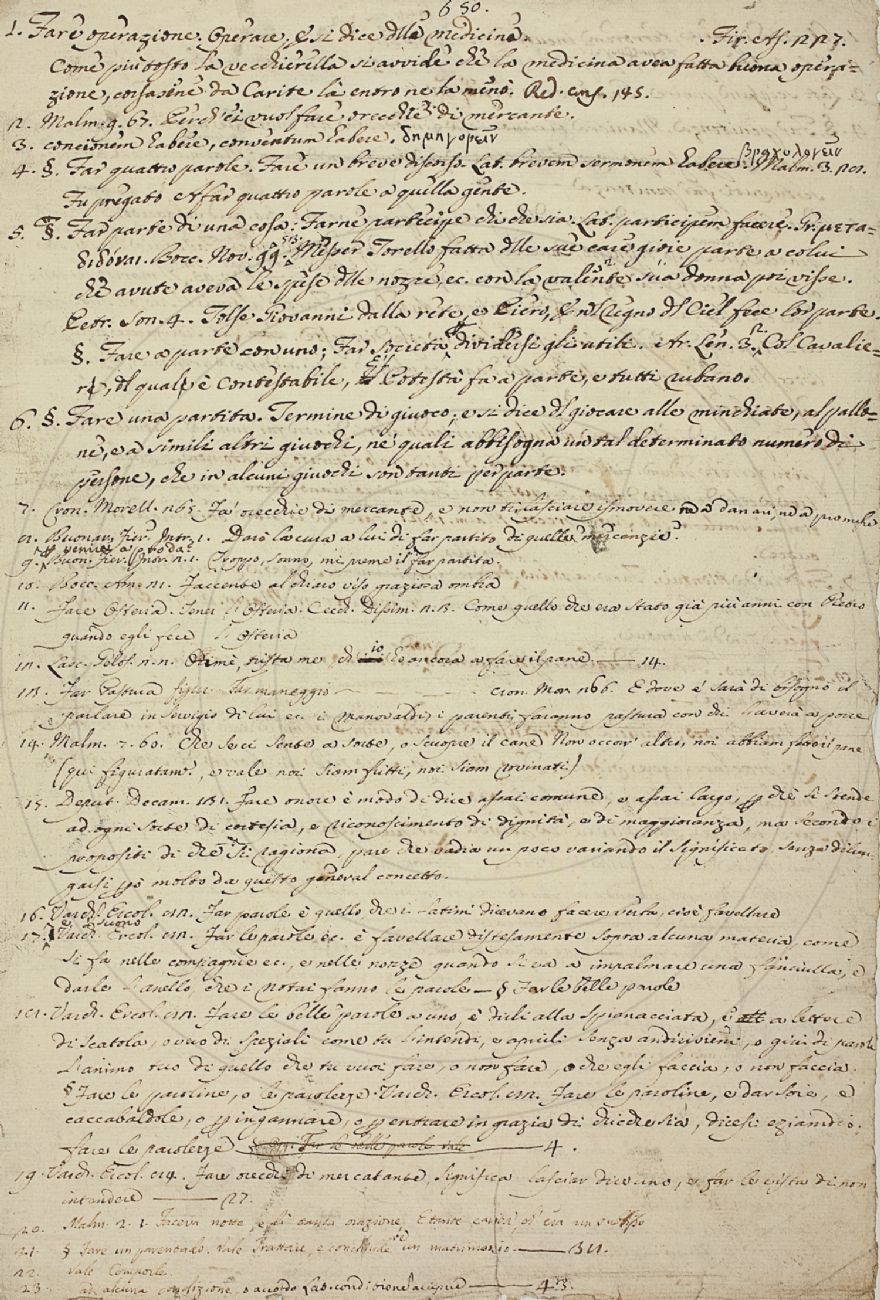 650.
1. Fare operazione. Operare, e si dice della medicina. Fir. As. 227.
Come più tosto la vecchierella si avvide che la medicina avea fatta buona opera=
zione, corsasene da Carite là entro ne la menò. Red. cons. 145.
2. Malm. 9. 63. Perch'ei vuol fare orecchie di mercante.
3. concionem habere, conventum habere. δημηγορεῖν
4. §. Far quattro parole. Fare un breve discorso. Lat. brevem sermonem habere. βραχυλογεῖν Malm. 3. 21.
Fu pregato a far quattro parole a quella gente.
5. §. Far parte di una cosa. Farne partecipe chi che sia. Lat. participem facere. Gr. μετα-
διδόναι. Bocc. Nov. 99. Messer Torello fatta delle sue care gioie parte a colui
che avute aveva le spese delle nozze, ec. con la valente sua donna poi visse.
Petr. Son. 4. Tolse Giovanni dalla rete, e Piero, E nel Regno del Ciel fece lor parte.
§. Fare a parte con uno; Far società, dividersi gli utili. Ar. Len. 3. 2. Col Cavalie-
re, del quale è Contestabile, il Potestà fa a parte, e tutti rubano.
6. §. Fare una partita. Termine di giuoco; e si dice del giocare alle minchiate, al pallo-
ne, e a simili altri giuochi, ne' quali abbisogna un tal determinato numero di
persone, che in alcuni giuochi son tanti per parte.
7. Cron. Morell. 265. Fa' orecchie di mercante, e non ti lasciare ismovere nè a danari, nè a promesse
8. Buonar. Fier. Intr. 1. Darò la cura a lui di far partito di quelle mercanzie.
venire a proda
9. Buon. Fier. Intr. 2. 1. Troppo, sonno, mi preme il far partita.
10. Bocc. Am. 21. Faccente al chiaro viso graziosa ombra
11. Fare Osteria. Tener l'Osteria. Cecch. Dissim. 2. 3. Come quello che era stato già più anni con Pietro
quando egli fece l'Osteria
12. Lasc. Gelos. 2. 2. Oimè, trista me ch'io ho ancora a fare il pane. — 14.
13. Far Pastura figur. Far maneggio — Cron. Mor. 266. E dove e' sarà di bisogno il
parlare in servigio di lui ec. i manovaldi, i parenti faranno pastura con chi l'averà a porre
14. Malm. 7. 60. Che se ci sente a sorte, o scuopre il cane Non occorr'altro, noi abbiam fatto il pane
(qui figuratam. e vale noi siam fritti, noi siam rovinati)
15. Deput. Decam. 131. Fare onore è modo di dire assai comune, e assai largo, perchè si stende
ad ogni sorte di cortesia, e riconoscimento di dignità, e di maggioranza, ma secondo i
propositi di che si ragiona, pare che vadia un poco variando il significato, senza dilun-
garsi però molto da questo general concetto.
16. Varch. Ercol. 82. Far parole è quello che i Latini dicevano facere verba, cioè favellare
17. Varch. Ercol. 82. Far le parole ec. è favellare distesamente sopra alcuna materia, come
si fa nelle compagnie ec., e nelle nozze quando si va a impalmare una fanciulla, e
darle l'anello, che i notai fanno le parole — § Far le belle parole
18. Varch. Ercol. 82. Fare le belle parole a uno, è dirli alla spianacciata, e a lettere
di scatola, ovvero di speziali come tu l'intendi, e aprirli senza andirivieni, o giri di parole
l'animo tuo di quello che tu vuoi fare, o non fare, o che egli faccia, o non faccia.
§ Fare le paroline, o le parolozze. Varch. Ercol. 82. Fare le paroline, e dar soie, e
caccabaldole, o per ingannare, o per entrare in grazia di chicche sia, dicesi eziandio
fare le parolozze — 4.
19. Varch. Ercol. 84. Fare orecchie di mercatante, significa lasciar dire uno, e far le viste di non
intendere — 27.
20. Malm. 2. 1. Faceva notte, e dì tanta orazione, E tante carità, ch'era un subisso
21. § Fare un parentado. Vale Trattare, e conchiudere un matrimonio. — 32.
22. Vale Comporle
23. ad alcuna condizione, o accordo Lat. conditione — 43.